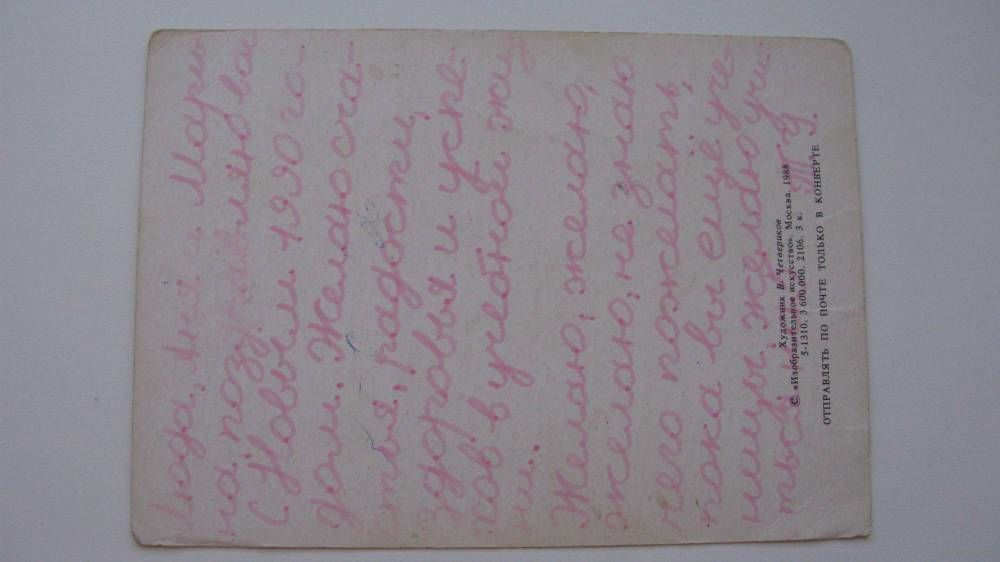 Люда, Аня и Мари
на, поздравляю вас
с Новым 1990 го-
дом. Желаю сча-
стья, радости,
здоровья и успе-
хов в учебной жиз
ни.
Желаю, желаю,
желаю, не знаю
чего пожелать,
пока вы ещё уче-
ницы, желаю учи
ться на
Художник В. Четвериков
© «Изобразительное искусство», Москва. 1988
5-1310. 3 600.000. 2106. 3 к.
ОТПРАВЛЯТЬ ПО ПОЧТЕ ТОЛЬКО В КОНВЕРТЕ